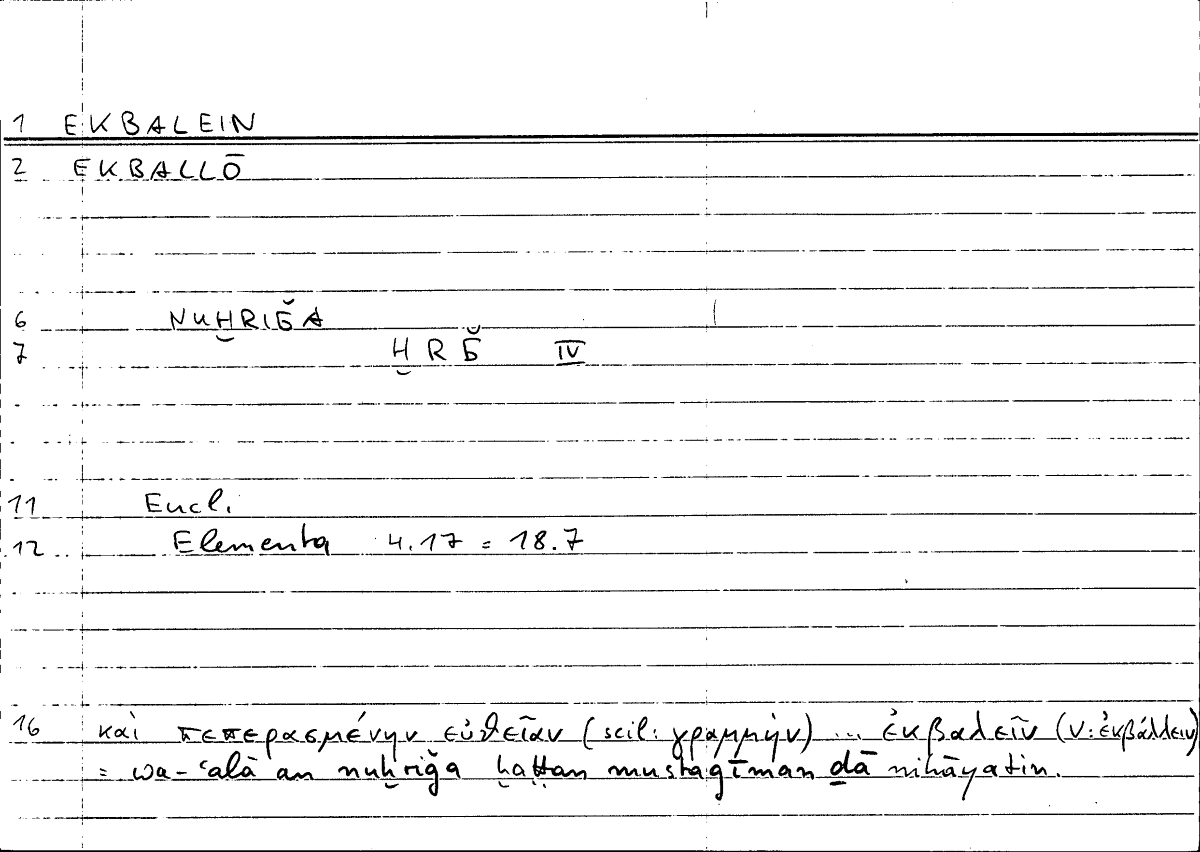 1 EKBALEIN
2 EKBALLŌ
6 NUḪRIǦA
7 ḪRǦ IV
11 Eucl.
12 Elementa 4.17 = 18.7
16 καὶ πεπερασμένην εὐθεῖαν (scil: γραμμὴν) ... ἐκβαλεῖν (V: ἐκβάλλειν)
= wa-ʿalā an nuḫriǧa ḫaṭṭan mustaqīman ḏā nihāyatin.